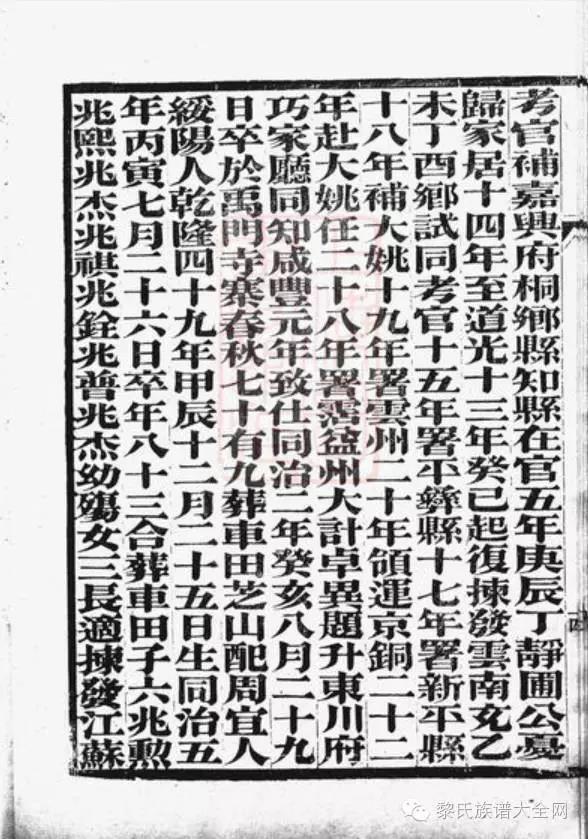 考官補嘉興府桐鄉縣知縣在官五年庚辰丁靜圃公憂
歸家居十四年至道光十三年癸巳起復揀發雲南充乙
未丁酉鄉試同考官十五年署平彝縣十七年署新平縣
十八年補大姚十九年署雲州二十年領運京銅二十二
年赴大姚任二十八年署霑益州大計卓異題升東川府
巧家廳同知咸豐元年致仕同治二年癸亥八月二十九
日卒於禹門寺寨春秋七十有九葬車田芝山配周宜人
綏陽人乾隆四十九年甲辰十二月二十五日生同治五
年丙寅七月二十六日卒年八十三合葬車田子六兆勲
兆熙兆杰兆祺兆銓兆普兆杰幼殤女三長適揀發江蘇
黎氏族谱大全网